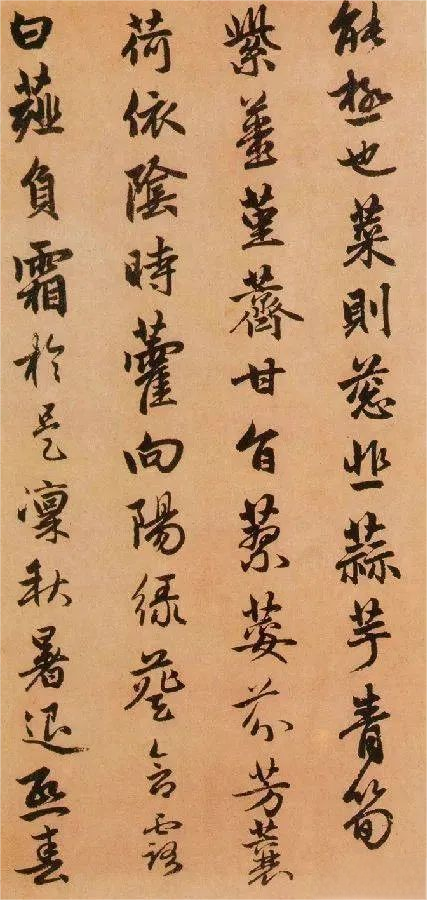 能極也菜則蔥韭蒜芋青筍
紫薑堇薺甘旨蓼荽芬芳蘘
荷依陰時藿向陽綠葵含露
白薤負霜於是凜秋暑退熙春